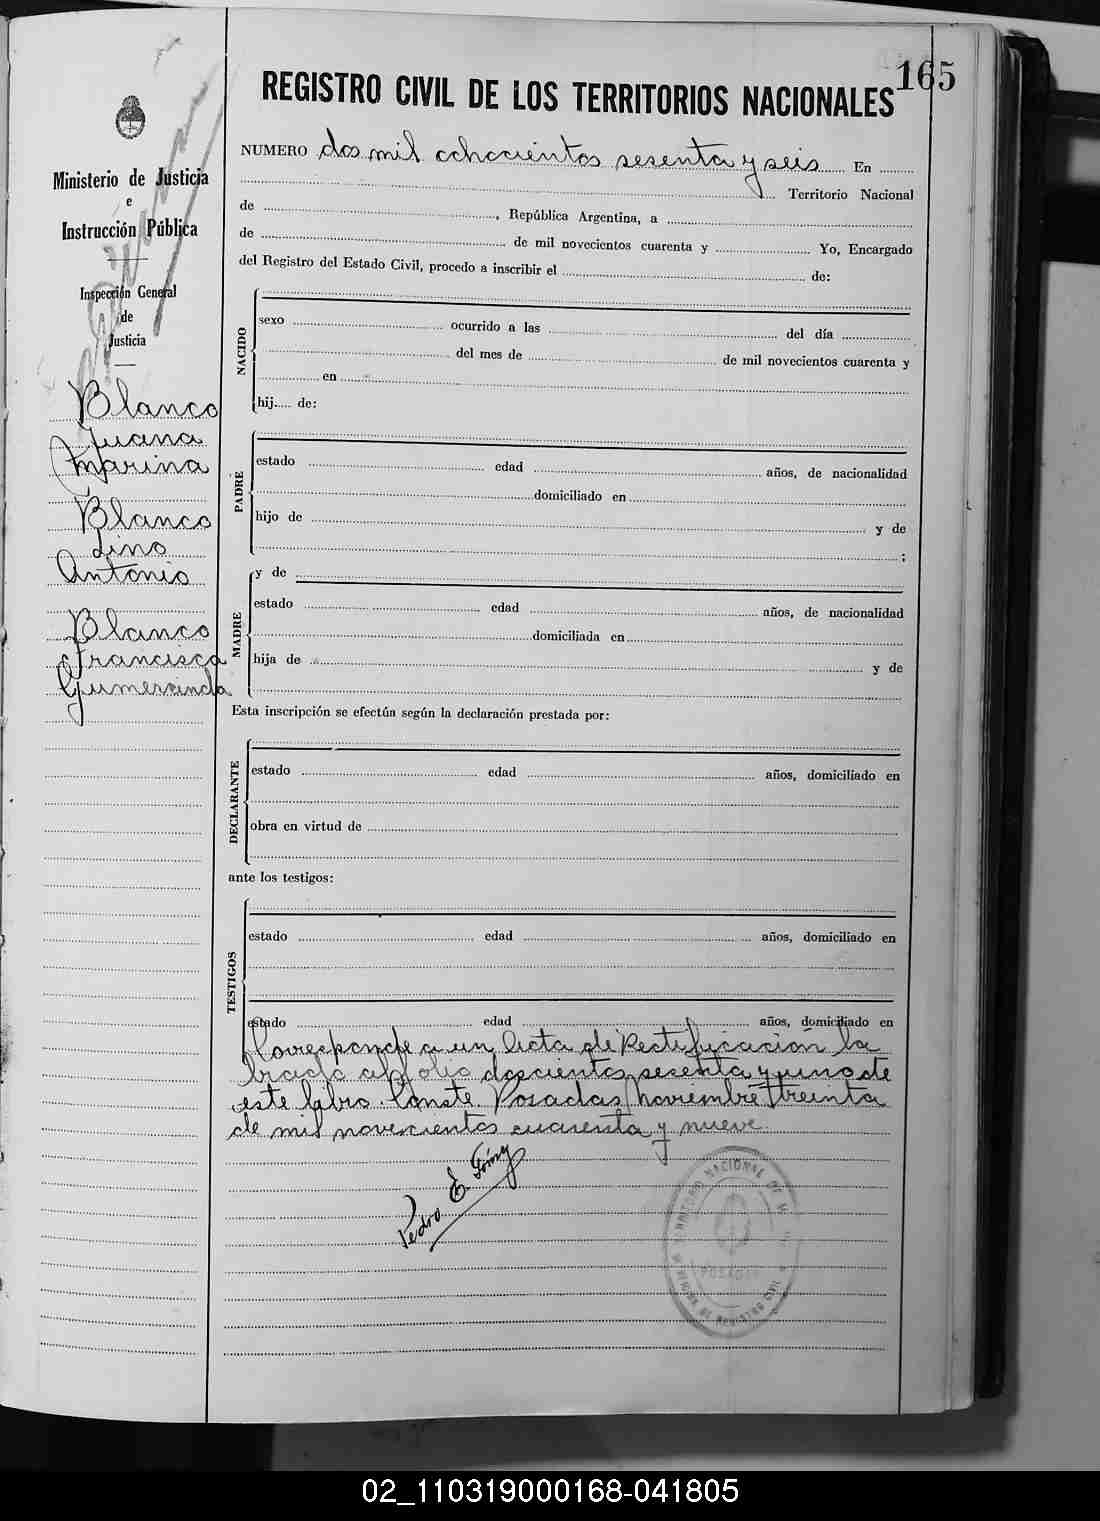 165
REGISTRO CIVIL DE LOS TERRITORIOS NACIONALES
Ministerio de Justicia
e
Instrucción Pública
Inspección General
de
Justicia
Blanco
Juana
Marina
Blanco
Lino
Antonio
Blanco
Francisca
Gumersinda
NUMERO dos mil ochocientos sesenta y seis En
Territorio Nacional
de , República Argentina, a
de de mil novecientos cuarenta y Yo, Encargado
del Registro del Estado Civil, procedo a inscribir el de:
NACIDO
sexo ocurrido a las del día
del mes de de mil novecientos cuarenta y
en
hij de:
PADRE
estado edad años, de nacionalidad
domiciliado en
hijo de y de
;
MADRE
y de
estado edad años, de nacionalidad
domiciliada en
hija de y de
Esta inscripción se efectún según la declaración prestada por:
DECLARANTE
estado edad años, domiciliado en
obra en virtud de
ante los testigos:
TESTIGOS
estado edad años, domiciliado en
estado edad años, domiciliado en
Corresponde a un Acta de Rectificación la
brada al folio doscientos sesenta y uno de
este libro. Conste. Posadas, Noviembre treinta
de mil novecientos cuarenta y nueve
Pedro E.
TERRITORIO NACIONAL DE
POSADAS
OFICINA DE REGISTRO CIVIL
02_110319000168-041805